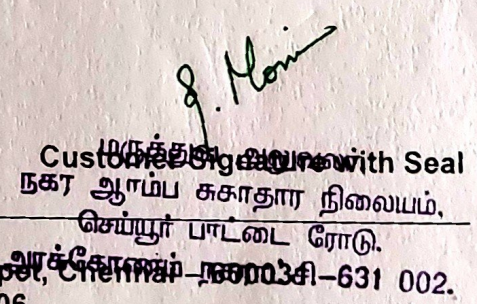 மருத்துவ அலுவலர்
Customer Signature with Seal
நகர ஆரம்ப சுகாதார நிலையம்,
செய்யூர் பாட்டை ரோடு.
அரக்கோணம் நகராட்சி-631 002.
pet, Chennai – 600034.